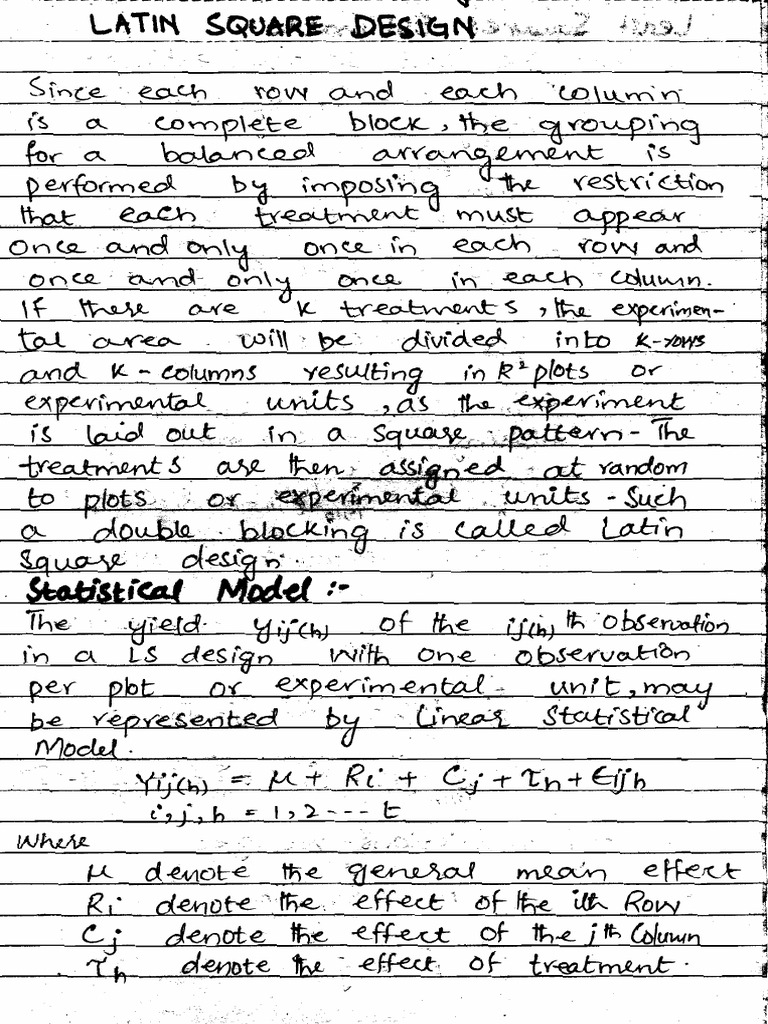 LATIN SQUARE DESIGN
Since each row and each column
is a complete block, the grouping
for a balanced arrangement is
performed by imposing the restriction
that each treatment must appear
once and only once in each row and
once and only once in each column.
If there are k treatments, the experimen-
tal area will be divided into k-rows
and k-columns resulting in k² plots or
experimental units, as the experiment
is laid out in a square pattern- The
treatments are then assigned at random
to plots or experimental units - Such
a double blocking is called Latin
square design.
Statistical Model :-
The yield yij(h) of the ij(h)th observation
in a LS design with one observation
per plot or experimental unit, may
be represented by Linear Statistical
Model.
Yij(h) = μ + Ri + Cj + τh + ϵijh
i, j, h = 1, 2 --- t
Where
μ denote the general mean effect
Ri denote the effect of the ith Row
Cj denote the effect of the jth Column
τh denote the effect of treatment.